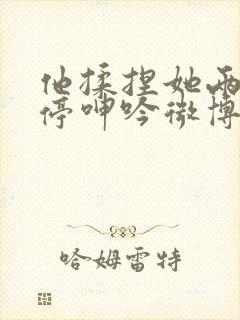 他揉捏她两
停呻吟微博
哈姆雷特